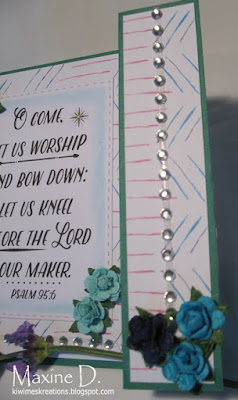 O COME,
ET US WORSHIP
ND BOW DOWN:
LET US KNEEL
FORE THE LORD
OUR MAKER.
PSALM 95:6
Maxine D.
kiwimeskreations.blogspot.com